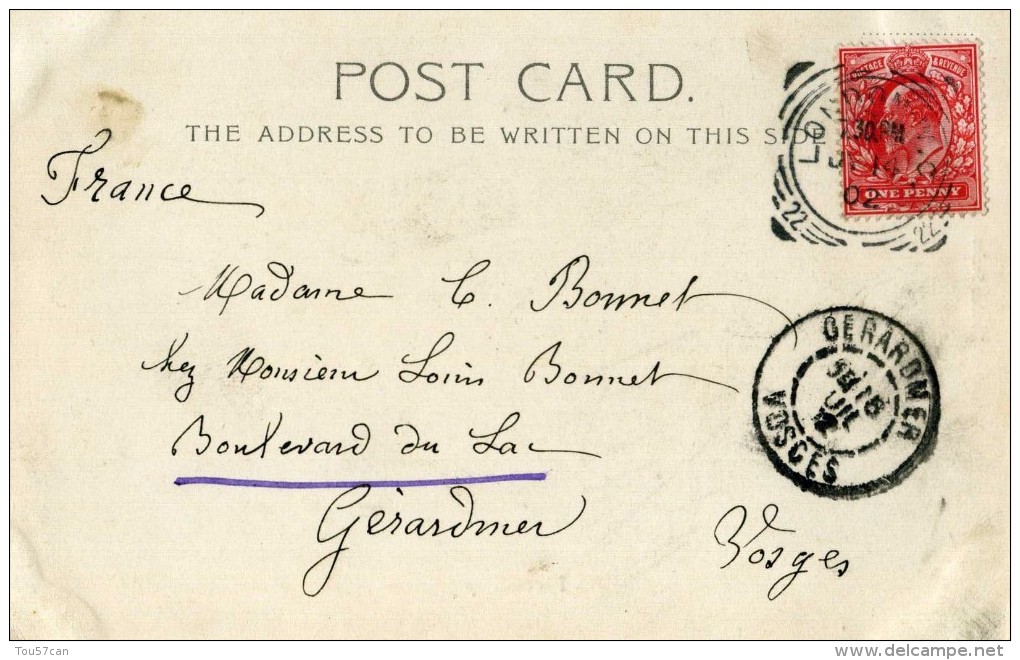 POST CARD.
THE ADDRESS TO BE WRITTEN ON THIS SIDE
POSTAGE & REVENUE
ONE PENNY
LONDON
.30.PM
JY 14
02
22
22
France
Madame C. Bonnet
chez Monsieur Louis Bonnet
Boulevard du Lac
Gérardmer
Vosges
GERARDMER
16
JUIL
VOSGES
Tou57can
www.delcampe.net